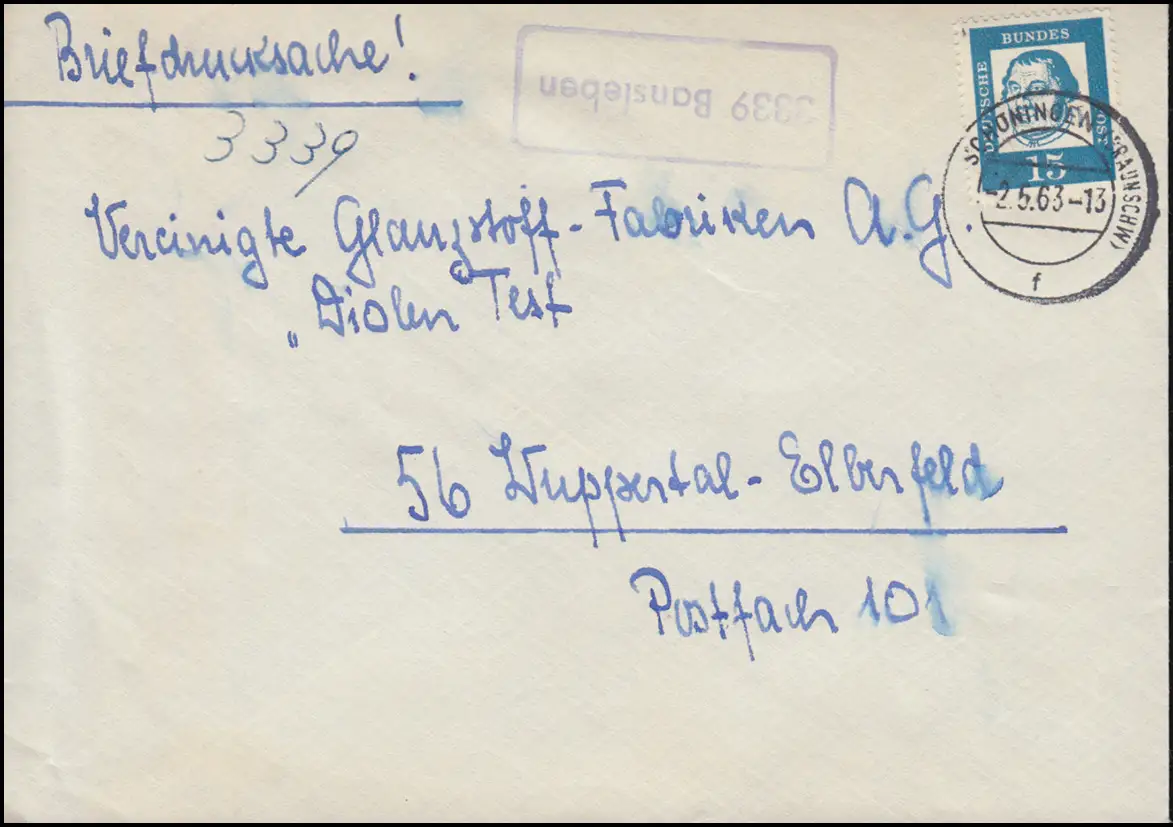 Briefdrucksache!
3339 Bansleben
3339
DEUTSCHE BUNDESPOST
15
SCHÖNINGEN (BRAUNSCHW)
-2.5.63-13
f
Vereinigte Glanzstoff-Fabriken A.G.
„Diolen Test
56 Wuppertal-Elberfeld
Postfach 101